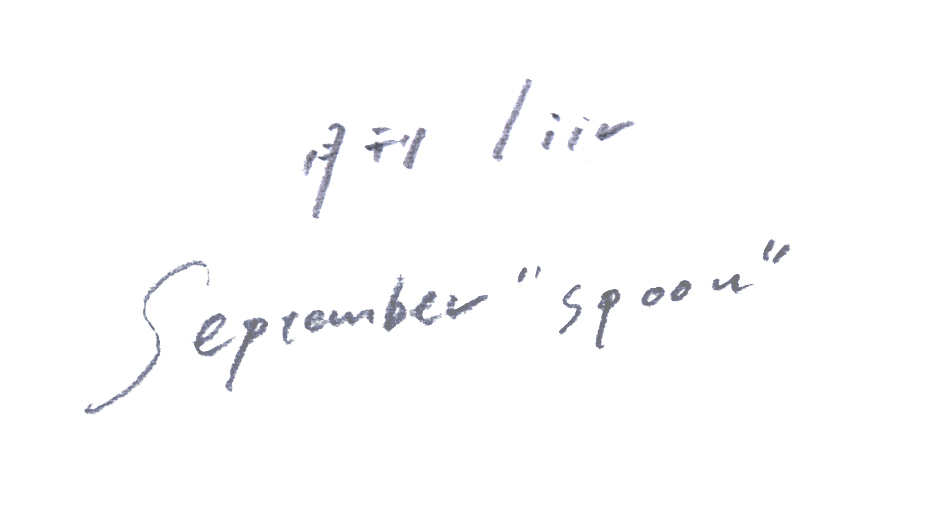 月刊 liir
September "spoon"